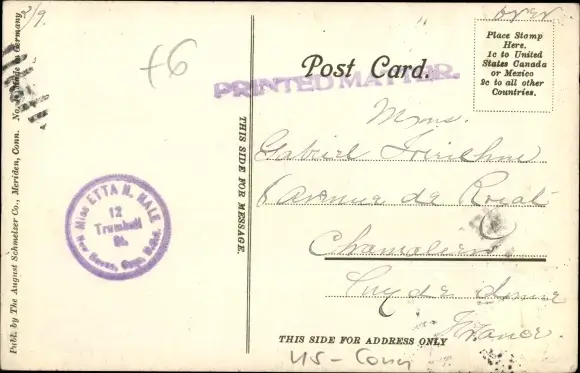 2/9.
Publ. by The August Schmelzer Co., Meriden, Conn. No. Made in Germany
+6
Miss ETTA N. HALE
12
Trumbull
St.
New Haven, Conn. U.S.A.
THIS SIDE FOR MESSAGE.
over
Place Stamp
Here.
1c to United
States Canada
or Mexico
2c to all other
Countries.
Post Card.
PRINTED MATTER.
Mme.
Gabriel
6 Avenue de Royat
Chamalieres
Puy de Dome
France.
THIS SIDE FOR ADDRESS ONLY
US - Conn